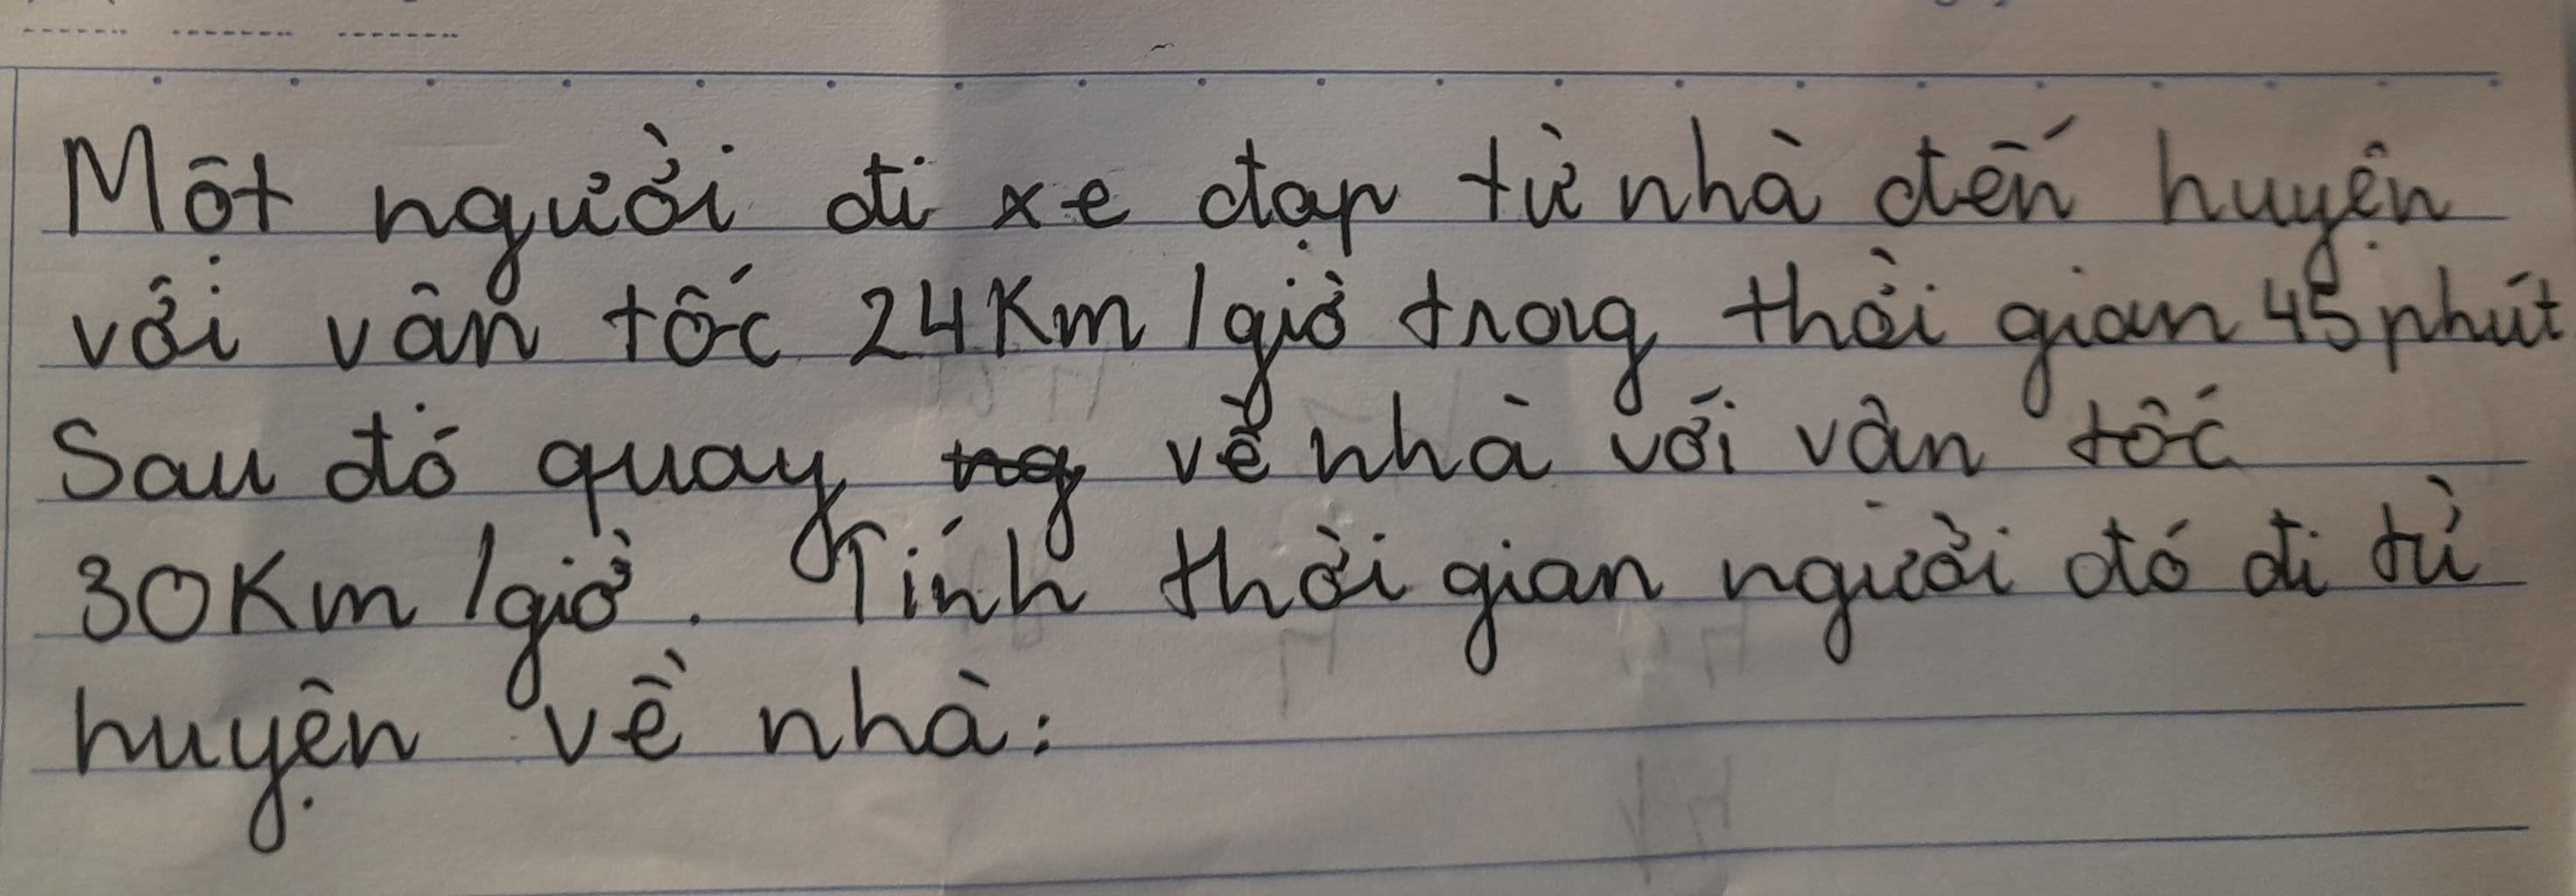 Một người đi xe đạp từ nhà đến huyện
với vận tốc 24Km/giờ trong thời gian 45 phút
Sau đó quay về nhà với vận tốc
30Km/giờ. Tính thời gian người đó đi từ
huyện về nhà: